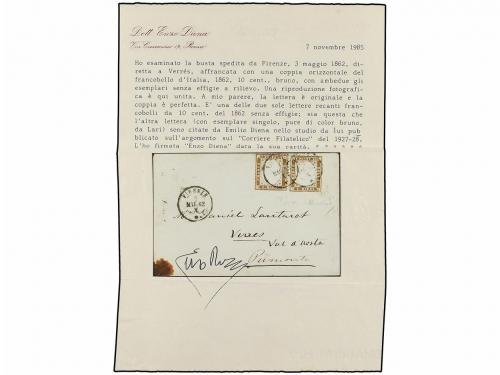 Dott. Enzo Diena
Via Crescenzio 19, Roma
7 novembre 1985
Ho esaminato la busta spedita da Firenze, 3 maggio 1862, di-
retta a Verrès, affrancata con una coppia orizzontale del
francobollo d'Italia, 1862, 10 cent., bruno, con ambedue gli
esemplari senza effigie a rilievo. Una riproduzione fotografi-
ca è qui unita. A mio parere, la lettera è originale e la
coppia è perfetta. E' una delle due sole lettere recanti fran-
cobolli da 10 cent. del 1862 senza effigie; sia questa che
l'altra lettera (con esemplare singolo, pure di color bruno,
da Lari) sono citate da Emilio Diena nello studio da lui pub-
blicato sull'argomento sul "Corriere Filatelico" del 1927-28.
L'ho firmata "Enzo Diena" data la sua rarità. * * * * * *
FIRENZE
MAG 62
Daniel
Verres
Val d'Aosta
Piemonte